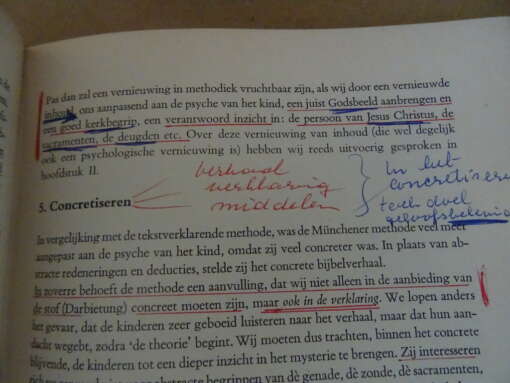 Pas dan zal een vernieuwing in methodiek vruchtbaar zijn, als wij door een vernieuwde
inhoud, ons aanpassend aan de psyche van het kind, een juist Godsbeeld aanbrengen en
een goed kerkbegrip, een verantwoord inzicht in: de persoon van Jesus Christus, de
sacramenten, de deugden etc. Over deze vernieuwing van inhoud (die wel degelijk
ook een psychologische vernieuwing is) hebben wij reeds uitvoerig gesproken in
hoofdsruk II.
verhaal
verklaring
middelen
In het
concretiseren
toch doel
geloofsbelevin
5. Concretiseren
In vergelijking met de tekstverklarende methode, was de Münchener methode veel meer
aangepast aan de psyche van het kind, omdat zij veel concreter was. In plaats van ab-
stracte redeneringen en deducties, stelde zij het concrete bijbelverhaal.
In zoverre behoeft de methode een aanvulling, dat wij niet alleen in de aanbieding van
de stof (Darbietung) concreet moeten zijn, maar ook in de verklaring. We lopen anders
het gevaar, dat de kinderen zeer geboeid luisteren naar het verhaal, maar dat hun aan-
dacht wegebt, zodra 'de theorie' begint. Wij moeten dus trachten, binnen het concrete
blijvende, de kinderen tot een dieper inzicht in het mysterie te brengen. Zij interesseren
abstracte begrippen van dè genade, dè zonde, dè sacramenten,